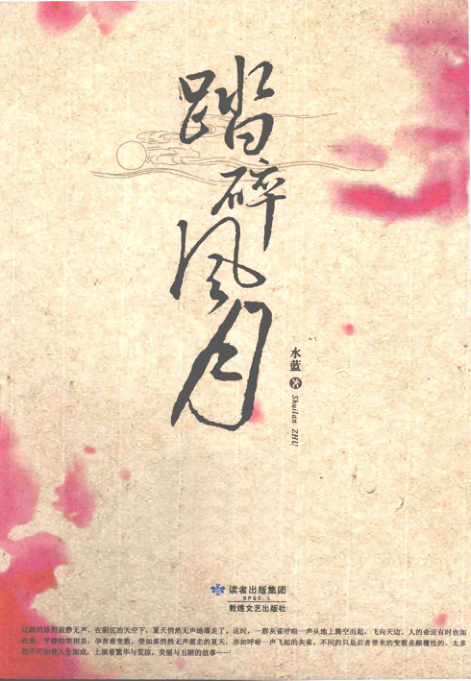 踏碎风月
水蓝 著 Shuilan ZHU
读者出版集团
D P G C . L
敦煌文艺出版社
辽阔的原野寂静无声，在阴沉的天空下，夏天悄然无声地溜走了，这时，一群灰雀呼啦一声从地上腾空而起，飞向天边，人的命运有时也如
此景，平静的表相里，孕育着变数，便如那悄然无声溜走的夏天，亦如呼啦一声飞起的灰雀，不同的只是后者带来的变数是颠覆性的，太多
的不可知使人生如戏，上演着繁华与荒凉，美丽与丑陋的故事……